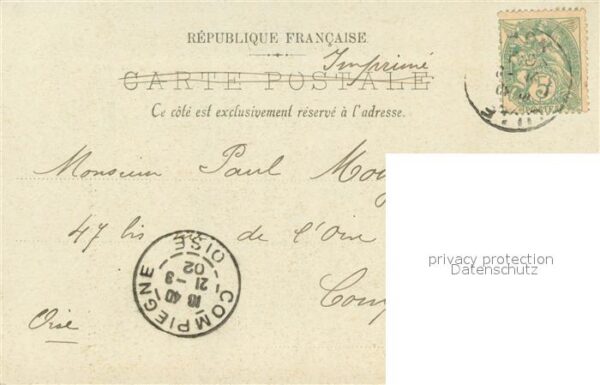 RÉPUBLIQUE FRANÇAISE
Imprimé
CARTE POSTALE
Ce côté est exclusivement réservé à l'adresse.
Monsieur Paul
47 bis rue de l'Oise
Oise
COMPIEGNE
18 40
21 - 3
02
OISE
5
privacy protection
Datenschutz